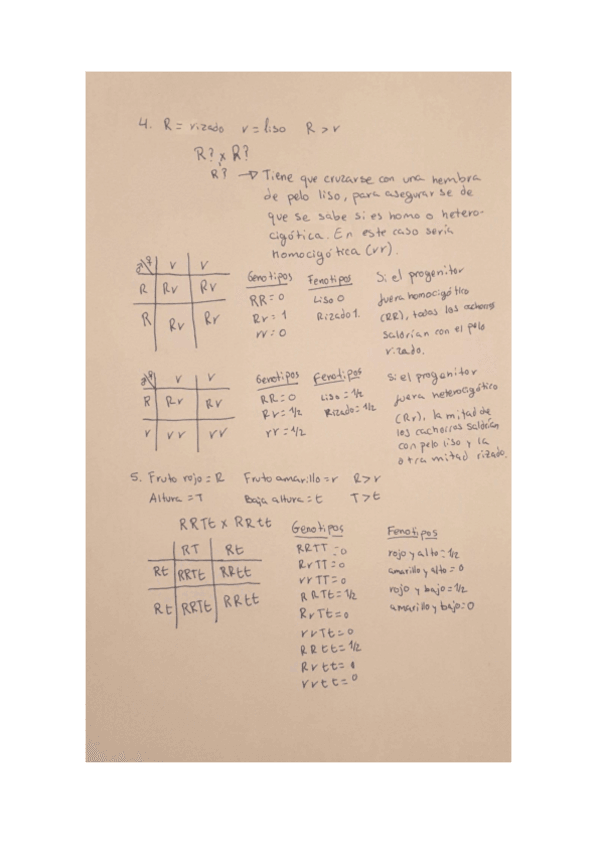 4. R = rizado v = liso R > v
R? x R?
R? → Tiene que cruzarse con una hembra
de pelo liso, para asegurarse de
que se sabe si es homo o hetero-
cigótica. En este caso sería
homocigótica (vv).
♂ ♀ v v
R Rv Rv
R Rv Rv
Genotipos
RR = 0
Rv = 1
vv = 0
Fenotipos
Liso 0
Rizado 1.
Si el progenitor
fuera homocigótico
(RR), todos los cachorros
saldrían con el pelo
rizado.
♂ ♀ v v
R Rv Rv
v vv vv
Genotipos
RR = 0
Rv = 1/2
vv = 1/2
Fenotipos
Liso = 1/2
Rizado = 1/2
Si el progenitor
fuera heterocigótico
(Rv), la mitad de
los cachorros saldrían
con pelo liso y la
otra mitad rizado.
5. Fruto rojo = R Fruto amarillo = r R > r
Altura = T Baja altura = t T > t
RRTt x RRtt
RT Rt
Rt RRTt RRtt
Rt RRTt RRtt
Genotipos
RRTT = 0
RvTT = 0
vvTT = 0
RRTt = 1/2
RvTt = 0
vvTt = 0
RRtt = 1/2
Rvtt = 0
vvtt = 0
Fenotipos
rojo y alto = 1/2
amarillo y alto = 0
rojo y bajo = 1/2
amarillo y bajo = 0